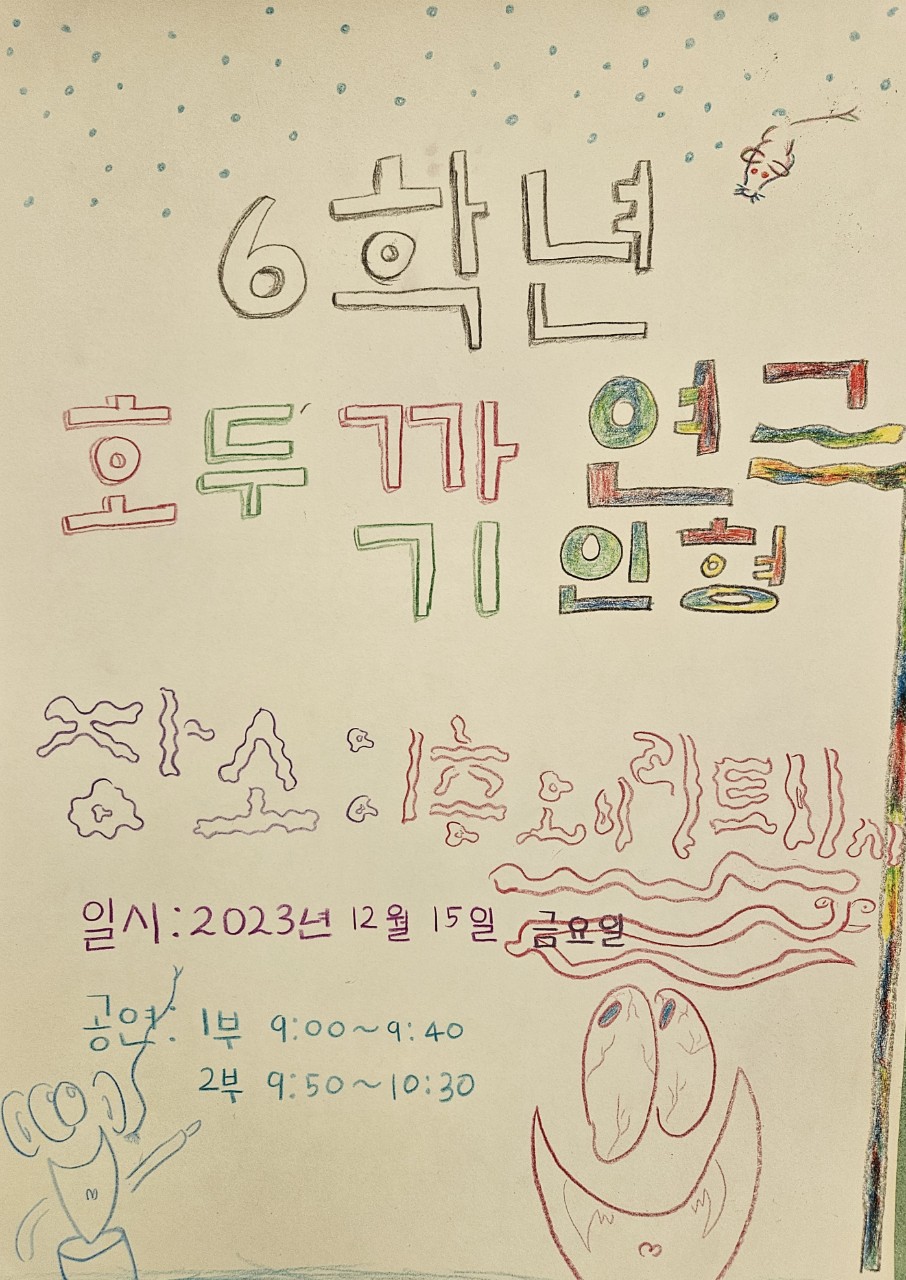 6학년
호두까기 인형 연극
장소:
일시:2023년 12월 15일 금요일
공연: 1부 9:00~9:40
2부 9:50~10:30